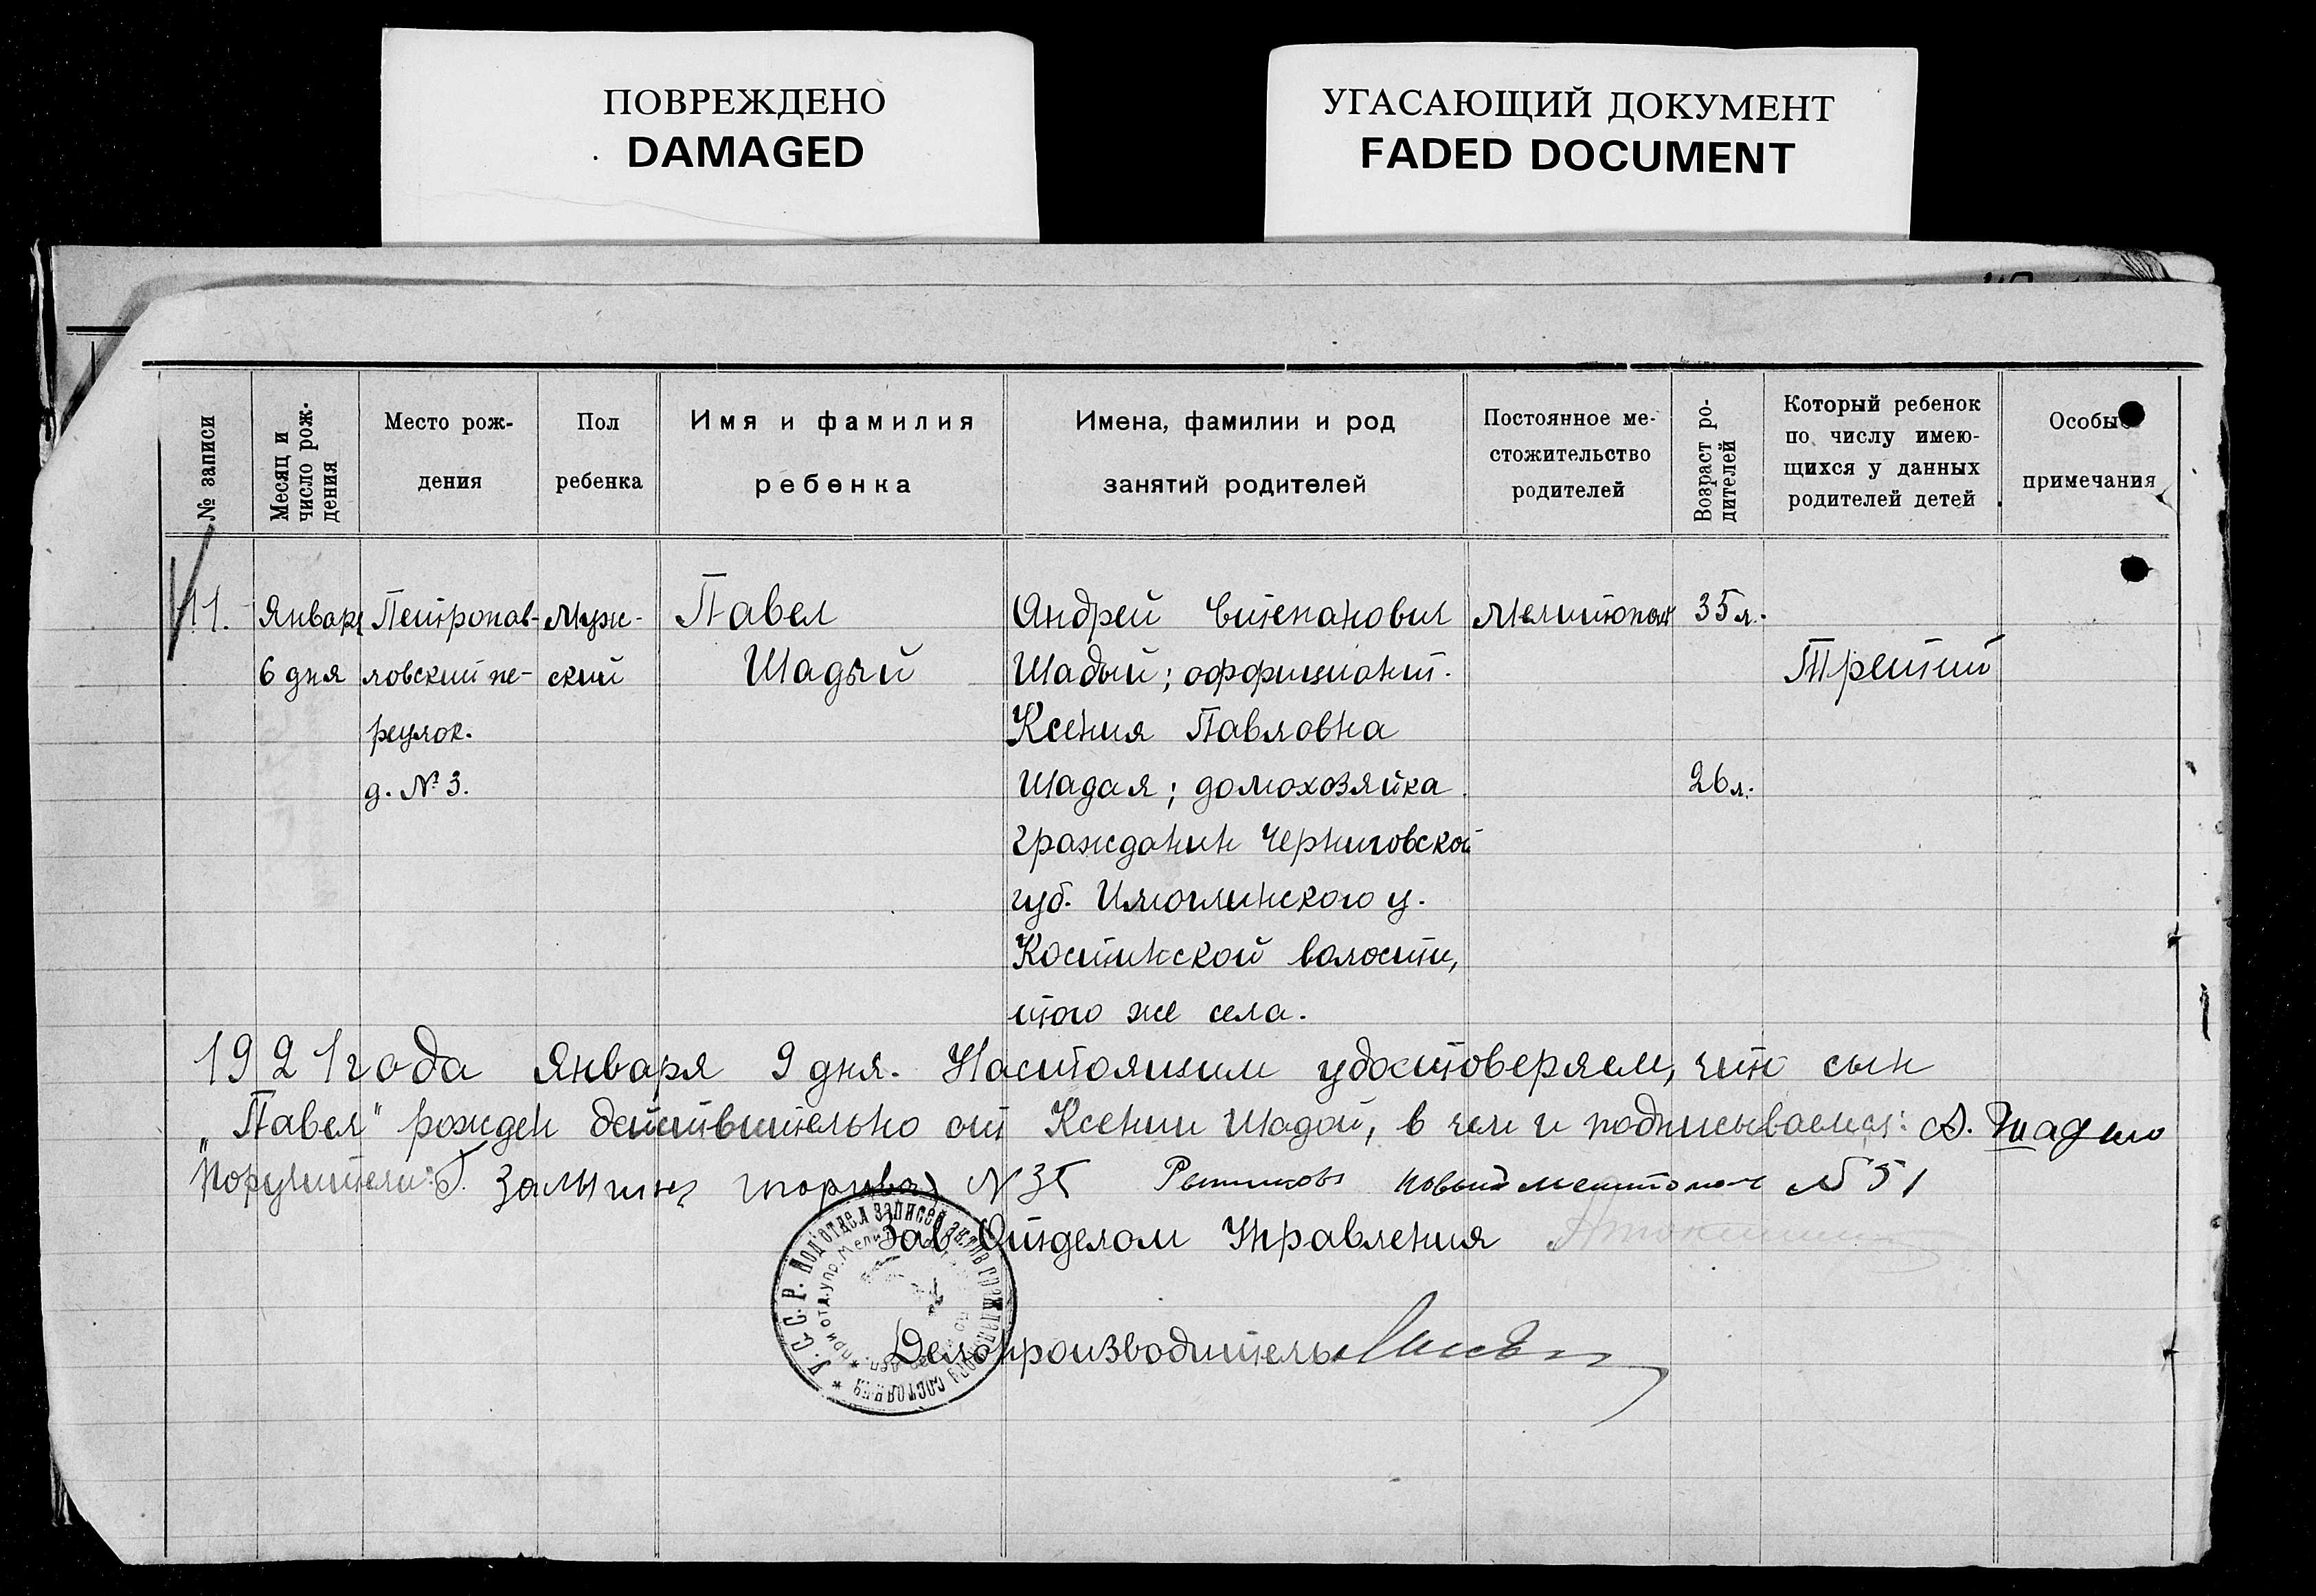 ПОВРЕЖДЕНО
DAMAGED
УГАСАЮЩИЙ ДОКУМЕНТ
FADED DOCUMENT
№ записи
Месяц и
число рож-
дения
Место рож-
дения
Пол
ребенка
Имя и фамилия
ребенка
Имена, фамилии и род
занятий родителей
Постоянное ме-
стожительство
родителей
Возраст ро-
дителей
Который ребенок
по числу имею-
щихся у данных
родителей детей
Особые
примечания
11.
Января
6 дня
Петропав-
ловский пе-
реулок.
д. № 3.
Муж-
ский
Павел
Шадый
Андрей Степанович
Шадый; оффициант.
Ксения Павловна
Шадая; домохозяйка.
гражданин Черниговской
губ. у.
волости,
того же села.
Мелитополь
35 л.
26 л.
Третий
1921 года Января 9 дня. Настоящим удостоверяем, что сын
„Павел" рожден действительно от Ксении Шадой, в чем и подписываемся: А.
Поручители: N 35 новый мелитополь № 51
Зав Отделом Управления
Делопроизводитель
У.С.С.Р. Под'отдел записей актов гражданского состояния
при отд. упр. Мелит